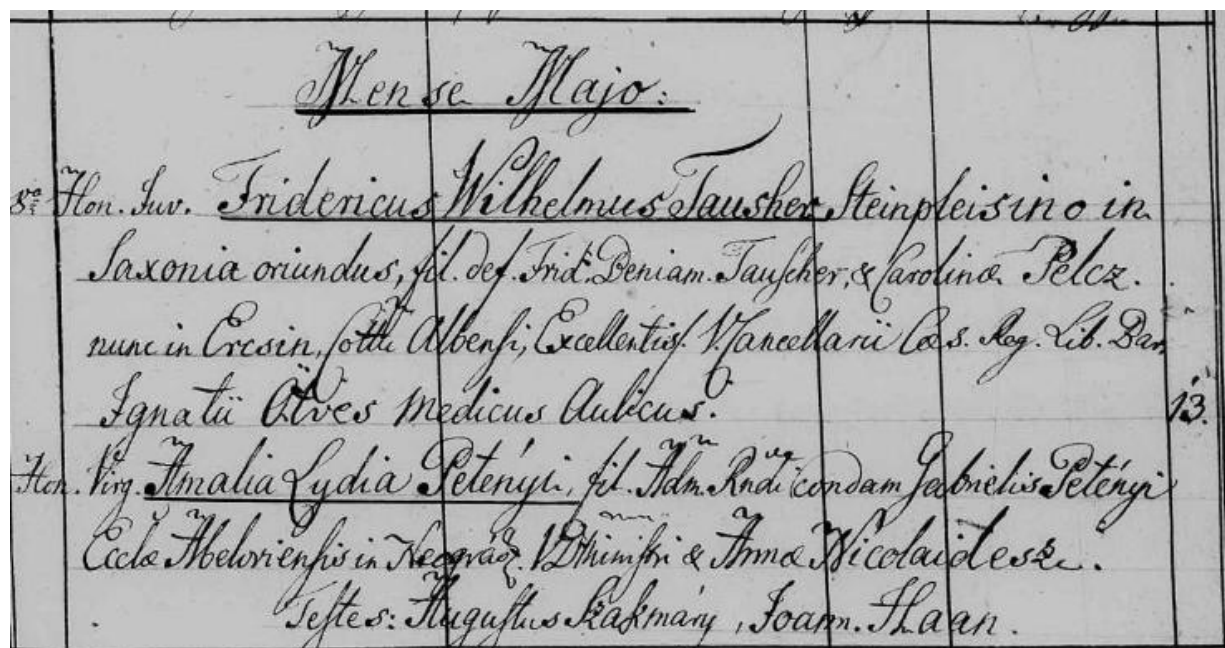 Mense Majo:
8va Hon. Juv. Fridericus Wilhelmus Tausher Steinpleisino in
Saxonia oriundus, fil. def. Frid. Beniam. Tauscher, & Carolinæ Pelcz.
nunc in Ercsin, Cottu Albensi, Excellentiss. V. Cancellarii Cæs. Reg. Lib. Bar.
Ignatii Ötves Medicus Aulicus. 13.
Hon. Virg. Amalia Lydia Petényi, fil. Adm. Rndi condam Gabrielis Petényi
Ecclæ Abeloviensis in Neográd. V.D. Ministri & Annæ Nicolaidesz.
Testes: Augustus Szakmáry, Joann. Haan.